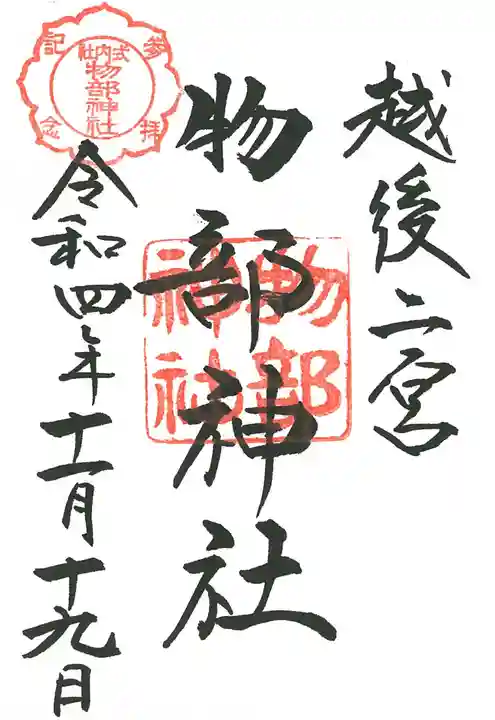 越後二宮
物部神社
物部
神社
令和四年十一月十九日
参拝
記念
式内社
物部神社